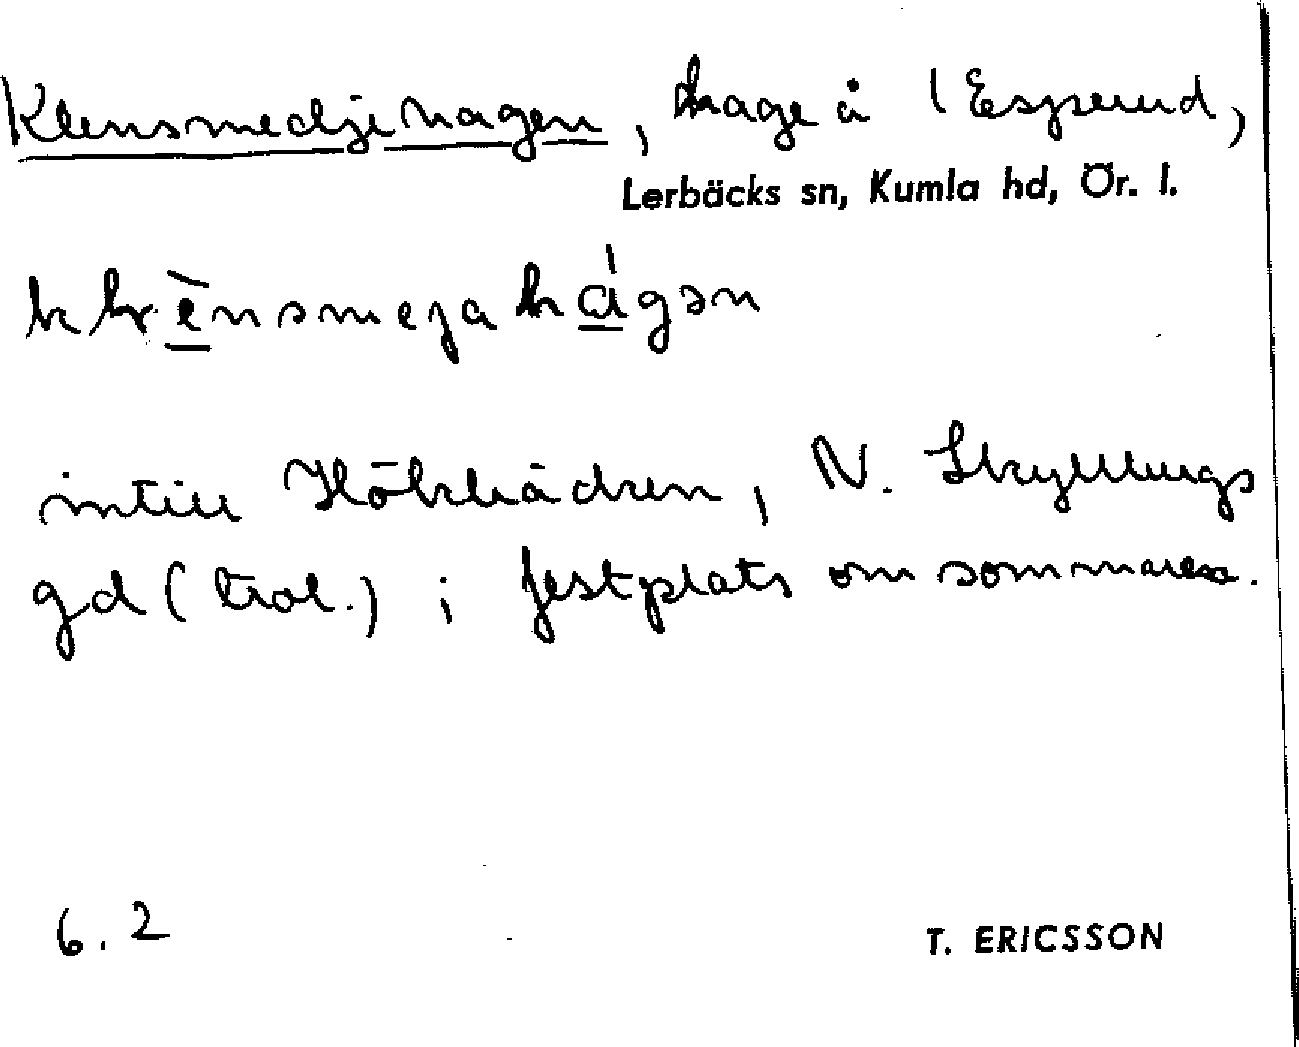 Klensmedjehagen, hage å 1 Esperud,
Lerbäcks sn, Kumla hd, Ör. l.
klènsmejahágən
intill N. Skyllbergs
gd (trol.); festplats om sommaren.
6.2
T. ERICSSON